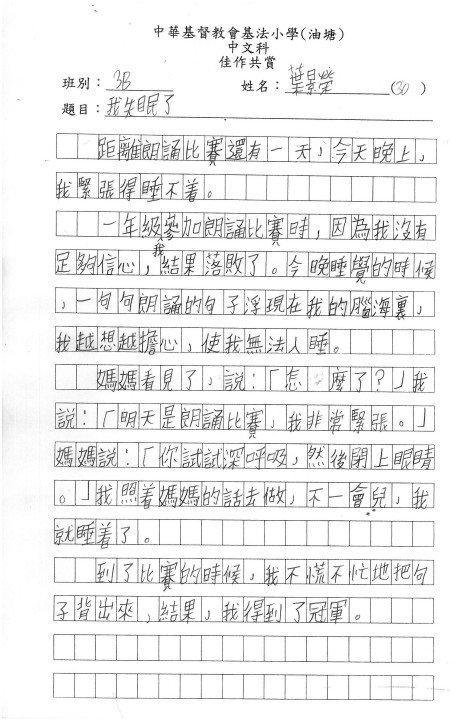 中華基督教會基法小學(油塘)
中文科
佳作共賞
班別：3B 姓名：葉景榮(30)
題目：我失眠了
距離朗誦比賽還有一天，今天晚上，
我緊張得睡不着。
一年級我參加朗誦比賽時，因為我沒有
足夠信心，結果落敗了。今晚睡覺的時候
，一句句朗誦的句子浮現在我的腦海裏，
我越想越擔心，使我無法入睡。
媽媽看見了，說：「怎麼了？」我
說：「明天是朗誦比賽，我非常緊張。」
媽媽說：「你試試深呼吸，然後閉上眼睛
。」我照着媽媽的話去做，不一會兒，我
就睡着了。
到了比賽的時候，我不慌不忙地把句
子背出來，結果，我得到了冠軍。